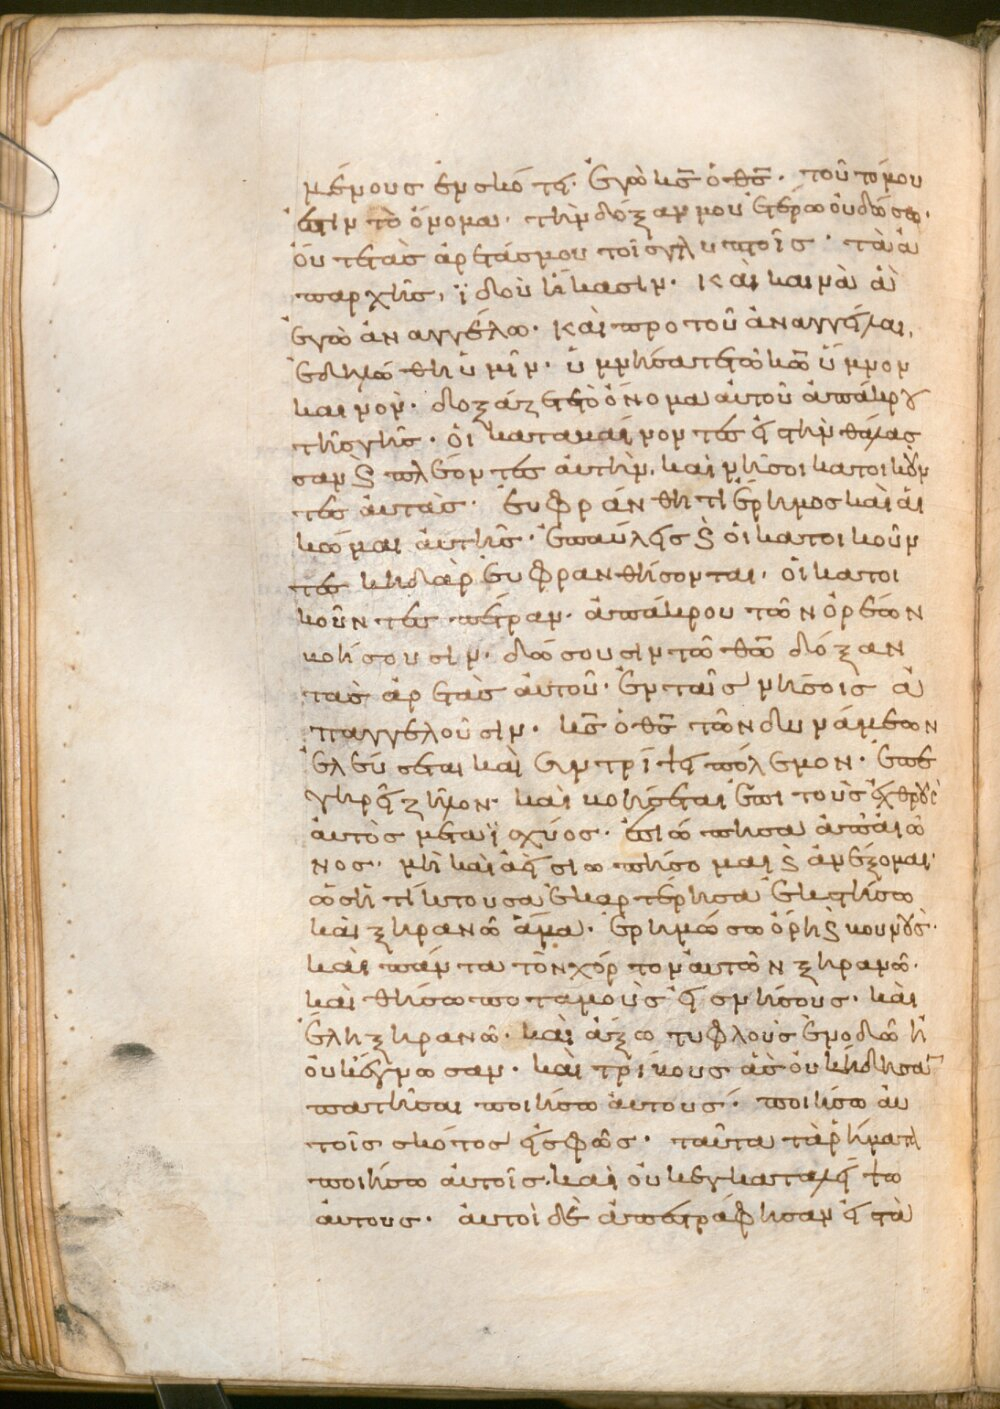 μένους ἐν σκότει· ἐγὼ κ̅ς̅ ὁ θ̅ς̅· τοῦτό μου
ἐστὶν τὸ ὄνομα· τὴν δόξαν μου ἑτέρω οὐ δώσω·
οὔτε τὰς ἀρετάς μου τοῖς γλυπτοῖς· τὰ ἀ
παρχῆς, ἰδοὺ ἥκασιν· καὶ καινὰ ἃ
ἐγὼ ἀναγγέλω· καὶ προ τοῦ ἀναγγεῖλαι,
ἐδηλώθη ὑμῖν· ὑμνήσατε τῶ κ̅ω̅ ὕμνον
καινόν· δοξάζετε τὸ ὄνομα αὐτοῦ ἀπάκρου
τῆς γῆς· οἱ καταβαίνοντες εἰς τὴν θάλασ
σαν ϗ πλέοντες αὐτήν, καὶ νῆσοι κατοικοῦν
τες αὐτάς· εὐφράνθητι ἔρημος καὶ αἱ
κῶμαι αὐτῆς· ἐπαύλεις ϗ οἱ κατοικοῦν
τες κηδὰρ εὐφρανθήσονται, οἱ κατοι
κοῦντες πέτραν· ἀπάκρου τῶν ὀρέων
βοήσουσιν· δώσουσιν τῶ θ̅ω̅ δόξαν
τὰς ἀρετὰς αὐτοῦ· ἐν ταῖς νήσοις ἀ
παγγελοῦσιν· κ̅ς̅ ὁ θ̅ς̅ τῶν δυνάμεων
ἐλεύσεται καὶ συντρίψει πόλεμον· ἐπε
γηρεῖ ζῆλον· καὶ βοήσεται ἐπι τοὺς ἐχθροὺς
αὐτὸς μετα ἰσχύος· ἐσιώπησα ἀπαιῶ
νος· μὴ καὶ ἀεὶ σιωπήσομαι ϗ ἀνέξομαι·
ὡς ἡ τίκτουσα ἐκαρτέρησα ἐκστήσω
καὶ ξηρανῶ ἅμα· ἐρημώσω ὄρη ϗ βουνούς·
καὶ πάντα τὸν χόρτον αὐτῶν ξηρανῶ·
καὶ θήσω ποταμοὺς εἰς νήσους· καὶ
ἕλη ξηρανῶ· καὶ ἄξω τυφλοὺς ἐν ὁδῶ ἧ
οὐκ ἔγνωσαν· καὶ τρίβους ἃς οὐκ ήδησαν
πατῆσαι ποιήσω αὐτούς· ποιήσω αὐ
τοῖς σκότος εἰς φῶς· ταῦτα τὰ ῥήματα
ποιήσω αὐτοῖς. καὶ οὐκ εγκαταλείψω
αὐτους· αὐτοὶ δὲ ἀπεστράφησαν εἰς τὰ